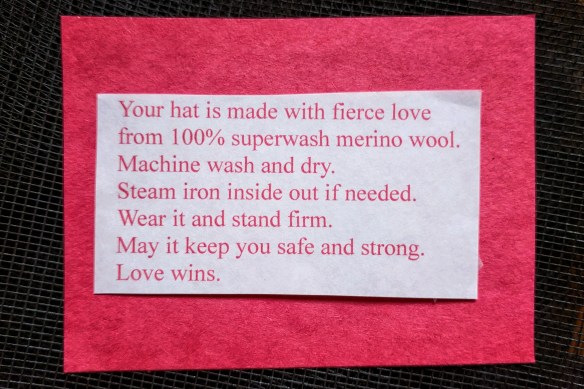 Your hat is made with fierce love
from 100% superwash merino wool.
Machine wash and dry.
Steam iron inside out if needed.
Wear it and stand firm.
May it keep you safe and strong.
Love wins.